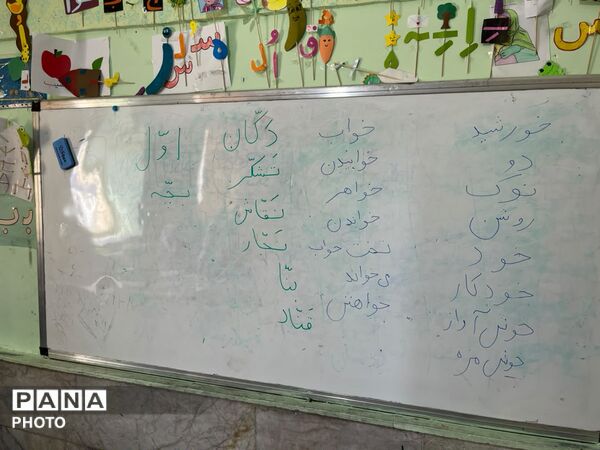 خورشید
دو
نوک
روشن
خود
خودکار
خوش آواز
خوش مزه
خواب
خوابیدن
خواهر
خواندن
تخت خواب
می خواند
خواهش
دکّان
تشکّر
نقّاش
نجّار
بنّا
قنّاد
اوّل
بچّه
PANA
PHOTO